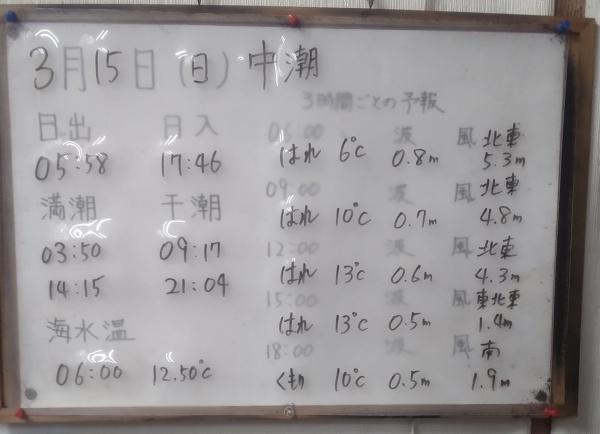 3月15日(日) 中潮
日出 日入
05:58 17:46
満潮 干潮
03:50 09:17
14:15 21:04
海水温
06:00 12.50℃
3時間ごとの予報
06:00 波 風 北東
はれ 6℃ 0.8m 5.3m
09:00 波 風 北東
はれ 10℃ 0.7m 4.8m
12:00 波 風 北東
はれ 13℃ 0.6m 4.3m
15:00 波 風 東北東
はれ 13℃ 0.5m 1.4m
18:00 波 風 南
くもり 10℃ 0.5m 1.9m